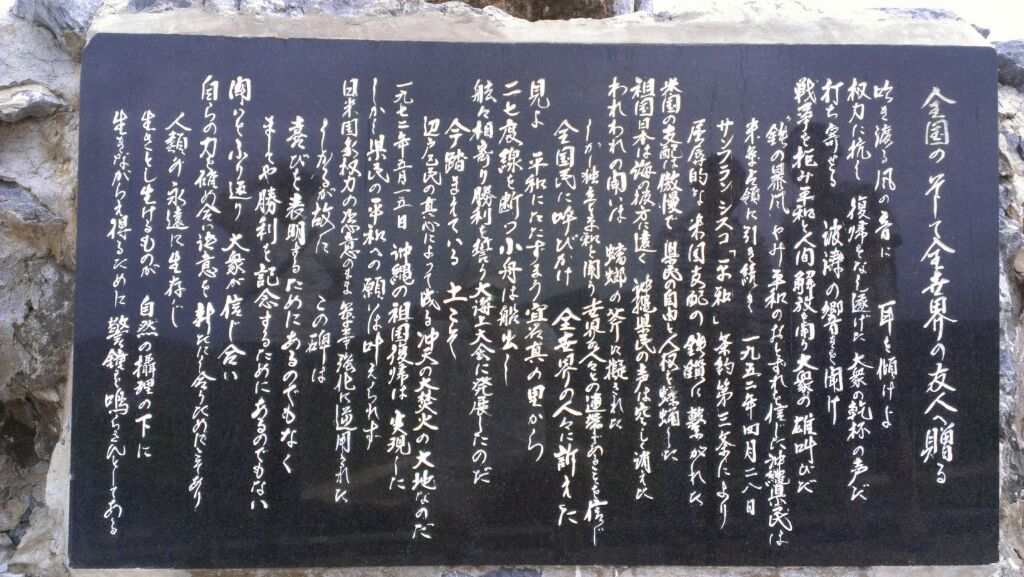 全国のそして全世界の友人へ贈る
吹き渡る風の音に　耳を傾けよ
権力に抗し　復帰をなし遂げた　大衆の乾杯の声だ
打ち寄せる　波濤の響きを聞け
戦争を拒み平和と人間解放を闘う大衆の　雄叫びだ
“鉄の暴風”やみ平和のおとずれを信じた沖縄県民は
米軍占領に引き続き　一九五二年四月二八日
サンフランシスコ「平和」条約第三条により
屈辱的な米国支配の　鉄鎖に繋がれた
米国の支配は傲慢で　県民の自由と人権を蹂躙した
祖国日本は海の彼方に遠く　沖縄県民の声は空しく消えた
われわれの闘いは　蟷螂の斧に擬された
しかし独立と平和を闘う世界の人々との連帯あることを信じ
全国民に呼びかけ　全世界の人々に訴えた
見よ　平和にたたずまう宜名真の里から
二七度線を断つ小舟は船出し
舷々相寄り勝利を誓う大海上大会に発展したのだ
今踏まえている　土こそ
辺戸区民の真心によって成る沖天の大焚火の大地なのだ
一九七二年五月一五日　沖縄の祖国復帰は　実現した
しかし県民の平和への願いは叶えられず
日米国家権力の恣意のまま軍事強化に逆用された
しかるが故に　この碑は
喜びを表明するためにあるのでもなく
ましてや勝利を記念するためにあるのでもない
闘いをふり返り　大衆が信じ合い
自らの力を確め合い決意を新たにし合うためにこそあり
人類が　永遠に生存し
生きとし生けるものが　自然の攝理の下に
生きながらえ得るために　警鐘を鳴らさんとしてある